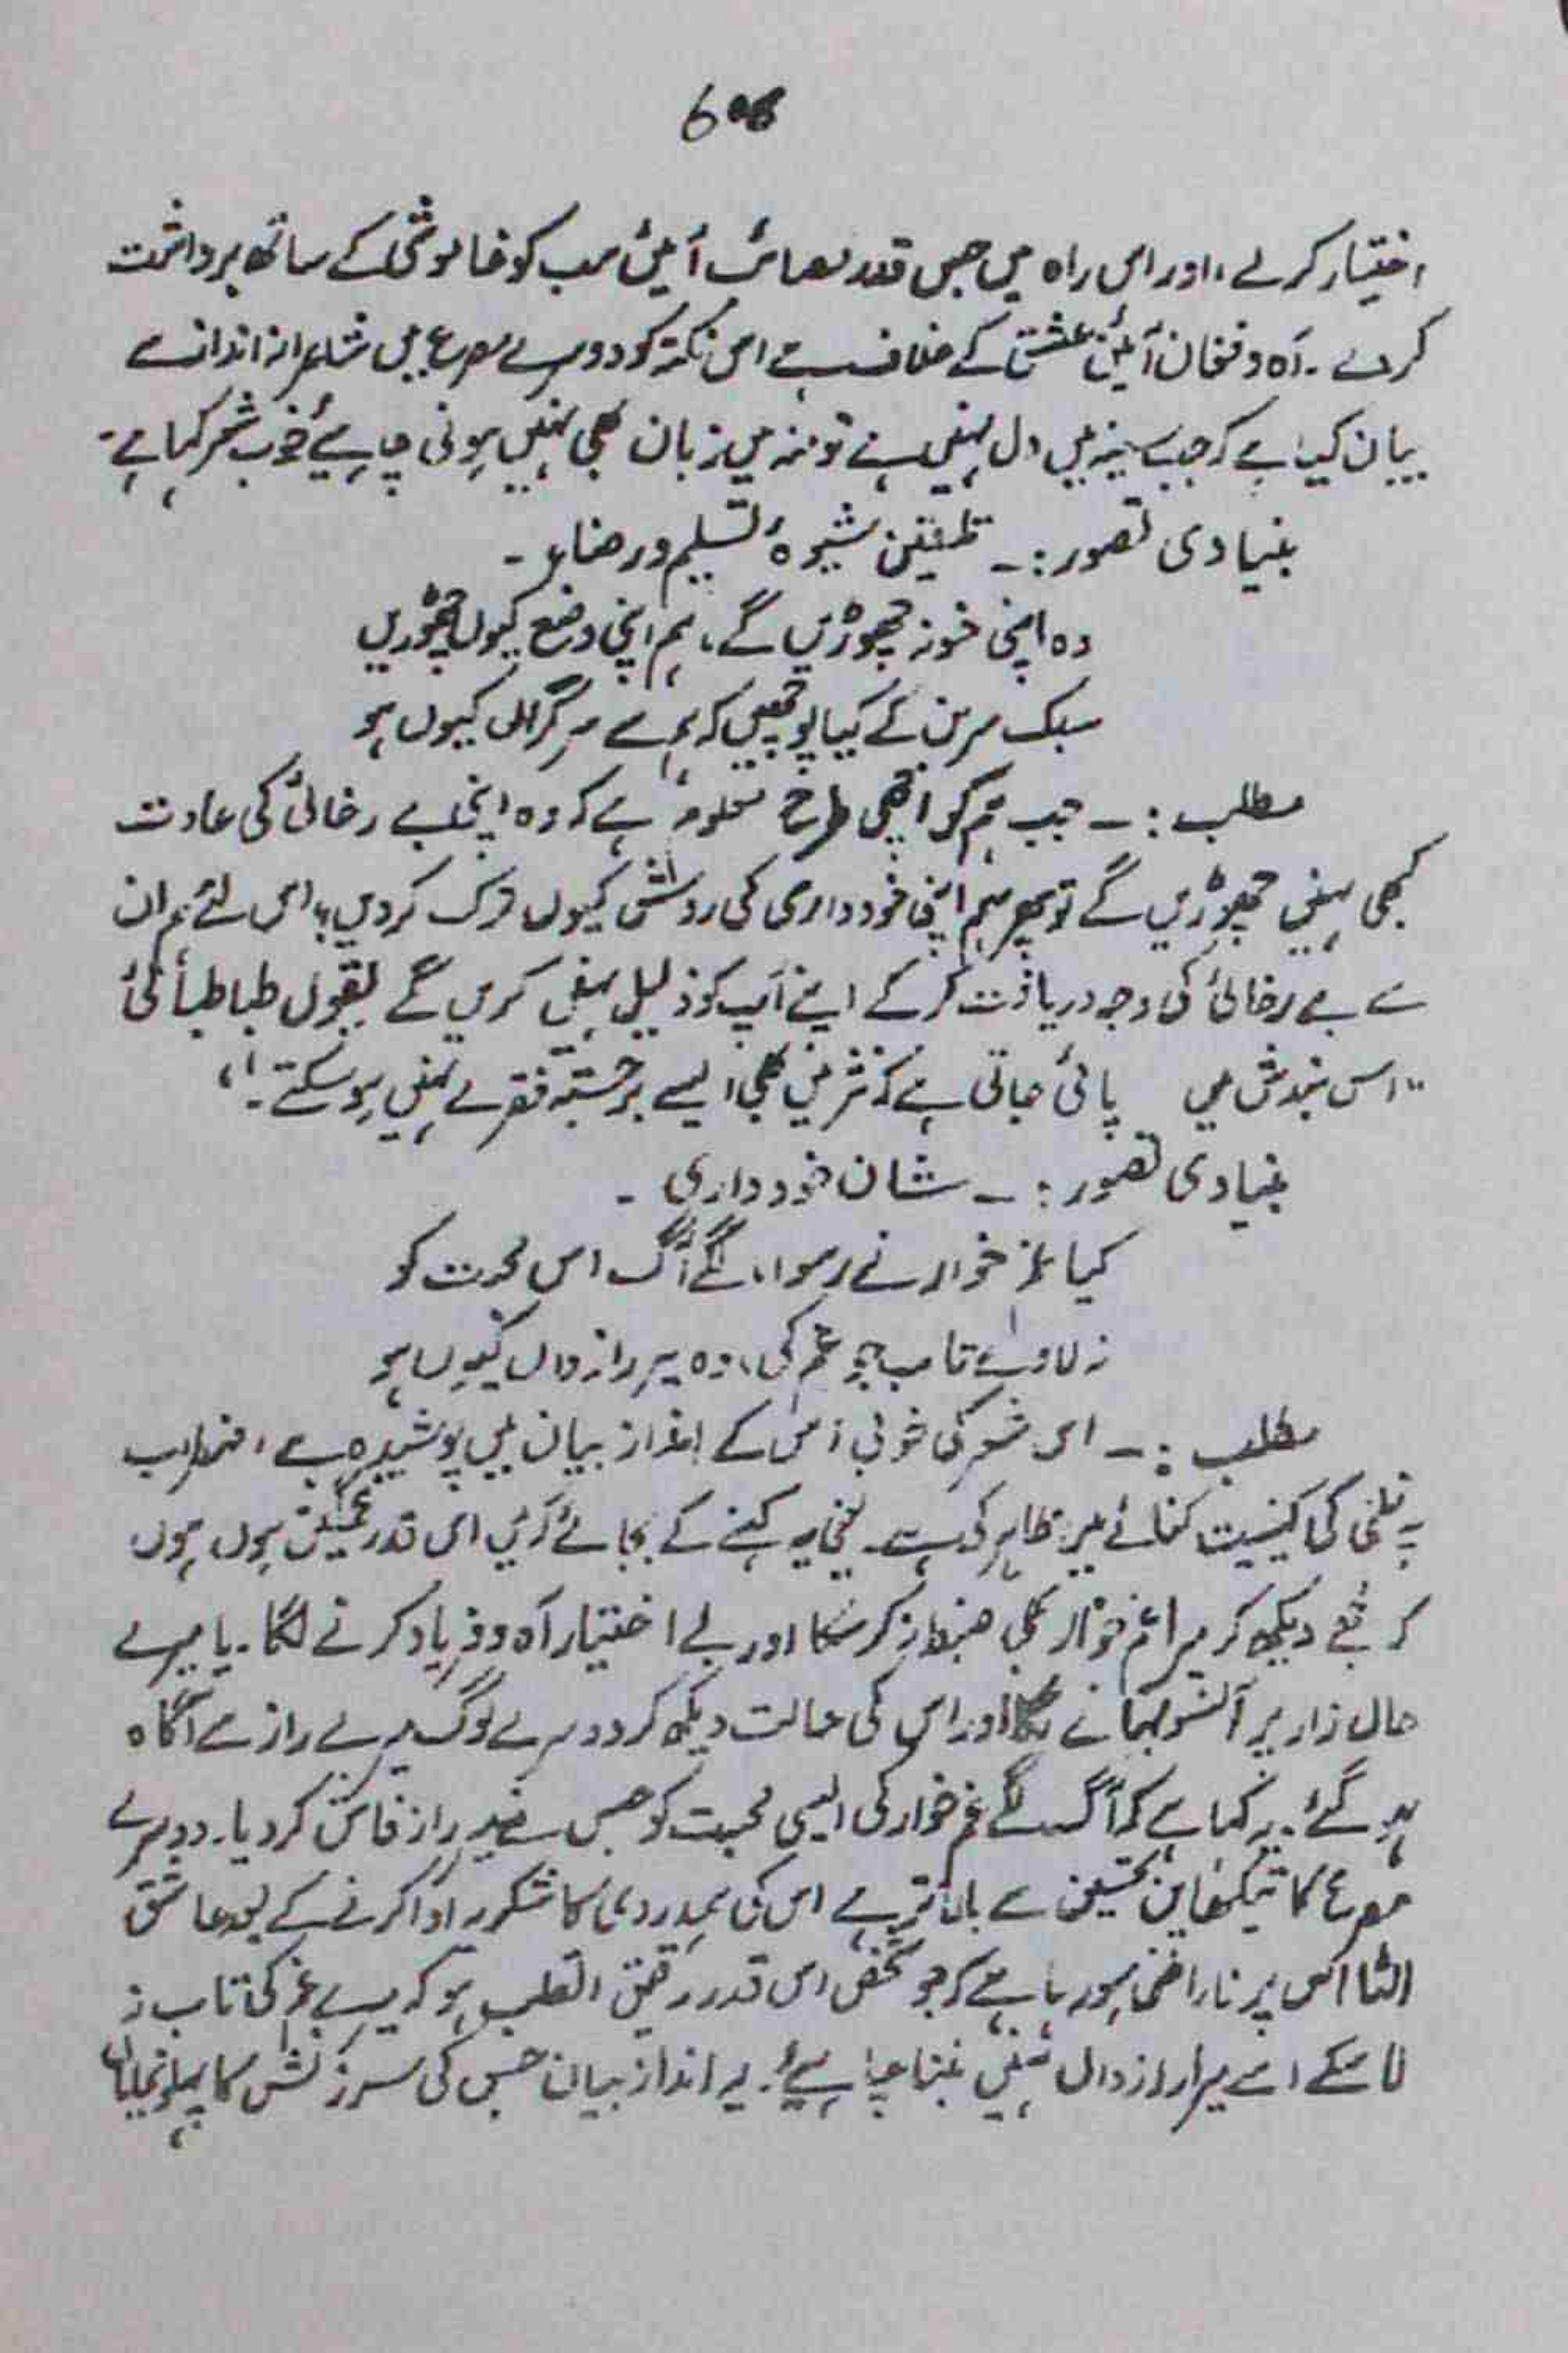 606
اختیار کرلے، اور اس راہ میں جس قدر مصائب آئیں سب کو خاموشی کے ساتھ برداشت
کرے۔ آہ و فغاں آئین عشق کے خلاف ہے اس نکتہ کو دوسرے مصرع میں شاعرانہ انداز سے
بیان کیا ہے کہ جب سینہ میں دل نہیں ہے تو منہ میں زبان بھی نہیں ہونی چاہیئے خوب شعر کہا ہے۔
بنیادی تصور :۔ تلقین شیوۂ تسلیم و رضاء ۔
وہ اپنی خو نہ چھوڑیں گے، ہم اپنی وضع کیوں چھوڑیں
سبک سر بن کے کیا پوچھیں کہ ہم سے سرگراں کیوں ہو
مطلب :۔ جب ہم کو اچھی طرح معلوم ہے کہ وہ اپنی بے رخائی کی عادت
کبھی نہیں چھوڑیں گے تو پھر ہم اپنی خودداری کی روش کیوں ترک کردیں، اس لئے ہم ان
سے بے رخائی کی وجہ دریافت کرکے اپنے آپ کو ذلیل نہیں کریں گے بقول طباطبائی
"اس بندش میں پائی جاتی ہے کہ نثر میں بھی ایسے برجستہ فقرے نہیں ہوسکتے۔"
بنیادی تصور :۔ شان خودداری ۔
کیا غم خوار نے رسوا، لگے آگ اس محبت کو
نہ لاوے تاب جو غم کی، وہ میرا رازداں کیوں ہو
مطلب :۔ اس شعر کی خوبی اس کے انداز بیان میں پوشیدہ ہے، اضطراب
قلبی کی کیفیت کنائے میں ظاہر کی ہے۔ یعنی یہ کہنے کے بجائے کہ میں اس قدر غمگین ہوں
کہ مجھے دیکھ کر میرا غم خوار بھی ضبط نہ کرسکا اور بے اختیار آہ و فریاد کرنے لگا۔ یا میرے
حال زار پر آنسو بہانے لگا اور اس کی حالت دیکھ کر دوسرے لوگ میرے راز سے آگاہ
ہو گئے۔ یہ کہا ہے کہ آگ لگے غم خوار کی ایسی محبت کو جس نے میرا راز فاش کردیا۔ دوسرے
مصرع کا تیکھا پن تحسین سے بالاتر ہے اس کی ہمدردی کا شکریہ ادا کرنے کے بعد عاشق
الٹا اس پر ناراض ہو رہا ہے کہ جو شخص اس قدر رقیق القلب ہو کہ میرے غم کی تاب نہ
لاسکے اسے میرا رازداں نہیں بننا چاہیئے۔ یہ انداز بیان جس کی سرزنش کا پہلو نمایاں